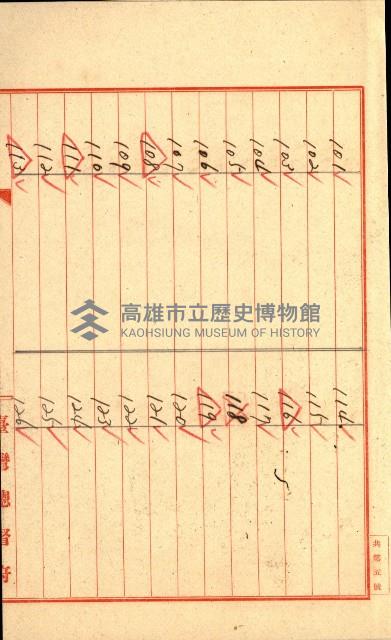 101
102
103
104
105
106
107
108
109
110
111
112
113
114
115
116
117
118
119
120
121
122
123
124
125
126
高雄市立歷史博物館
KAOHSIUNG MUSEUM OF HISTORY
臺灣總督府
共總五號